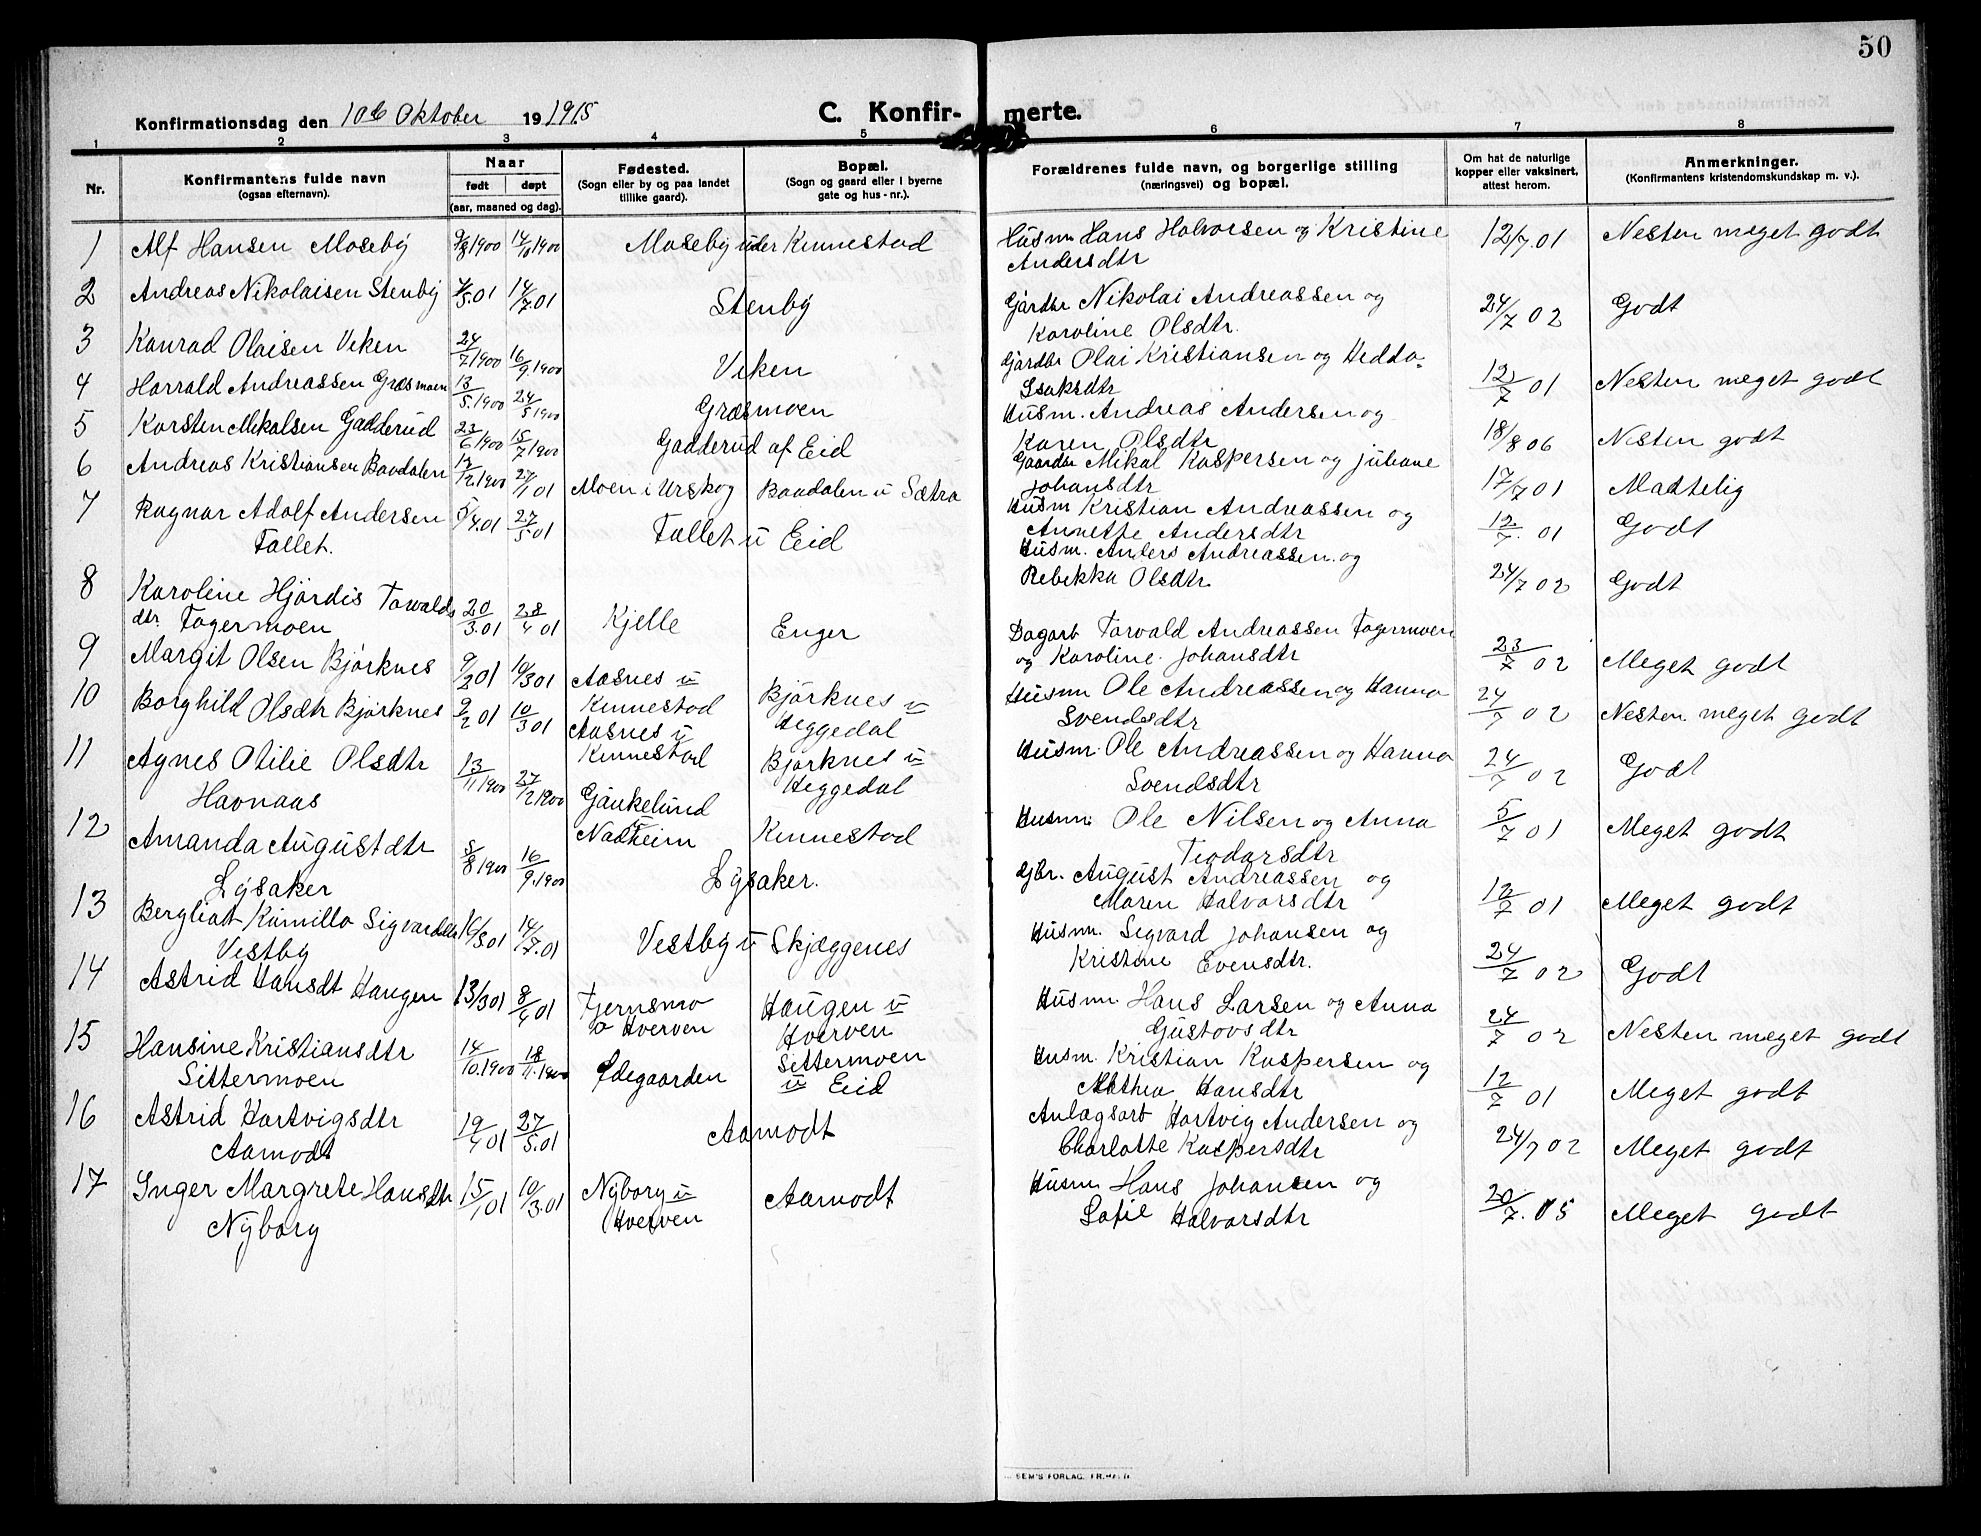 50
Konfirmationsdag den 10de Oktober 19 1915
C. Konfir- merte.
1 2 3 4 5 6 7 8
Nr.
Konfirmantens fulde navn
(ogsaa efternavn).
Naar
født døpt
(aar, maaned og dag).
Fødested.
(Sogn eller by og paa landet
tillike gaard).
Bopæl.
(Sogn og gaard eller i byerne
gate og hus-nr.).
Forældrenes fulde navn, og borgerlige stilling
(næringsvei) og bopæl.
Om hat de naturlige
kopper eller vaksinert,
attest herom.
Anmerkninger.
(Konfirmantens kristendomskundskap m. v.).
1 Alf Hansen Moseby 9/8 1900 14/10 1900 Moseby under Kinnestad Husm Hans Halvorsen og Kristine 12/7.01 Nesten meget godt
Andersdtr
2 Andreas Nikolaisen Stenby 4/5.01 14/7.01 Stenby Gårdbr Nikolai Andreassen og 24/7 02 Godt
Karoline Olsdtr.
3 Konrad Olaisen Viken 24/7 1900 16/9.1900 Viken Gårdbr Olai Kristiansen og Hedda 12/7 01 Nesten meget godt
Isaksdtr
4 Harrald Andreassen Græsmoen 13/5.1900 24/5 1900 Græsmoen Husm. Andreas Andersen og 18/8 06 Nesten godt
Karen Olsdtr
5 Karsten Mikalsen Gadderud 23/6 1900 15/7 1900 Gadderud af Eid Gaardbr Mikal Kaspersen og Juliane 17/7 01 Maatelig
Johansdtr
6 Andreas Kristiansen Baadalen 12/12 1900 27/1 01 Moen i Urskog Baadalen u Sætra Husm Kristian Andreassen og 12/7. 01 Godt
Annette Andersdtr
7 Ragnar Adolf Andersen 5/4.01 27/5 01 Tallet u Eid Husm. Anders Andreassen og 24/7 02 Godt
Tallet. Rebekka Olsdtr.
8 Karoline Hjördis Torvalds
dtr. Fagermoen 20/3.01 28/4 01 Kjelle Enger Dagarb Torvald Andreassen Fagermoen 23/7 02 Meget godt
og Karoline Johansdtr
9 Margit Olsen Björknes 9/2 01 10/3 01 Aasnes u Björknes u Husm Ole Andreassen og Hanna 24/7 02 Nesten meget godt
Kinnestad Heggedal Svendsdtr
10 Borghild Olsdtr Björknes 9/2 01 10/3 01 Aasnes u Björknes u Husm. Ole Andreassen og Hanna 24/7 02 Godt
Kinnestad Heggedal Svendsdtr
11 Agnes Otilie Olsdtr 13/11 1900 27/12 1900 Gaukelund Kinnestad Husm Ole Nilsen og Anna 5/7 01 Meget godt
Havnaas u Nadheim Teodorsdtr
12 Amanda Augustdtr 5/8 1900 16/9.1900 Lysaker. Gbr. August Andreassen og 12/7 01 Meget godt
Lysaker Maren Halvorsdtr
13 Bergliot Kamilla Sigvardsdtr 16/3 01 14/7.01 Vestby u Skjæggenes Husm. Sigvard Johansen og 24/7 02 Godt
Vestby Kristine Evensdtr.
14 Astrid Hansdt Haugen 13/3 01 8/4 01 Tjernsmo Haugen u Husm Hans Larsen og Anna 24/7 02 Nesten meget godt
u Hverven Hverven Gustavsdtr
15 Hansine Kristiansdtr 14/10.1900 18/11.1900 Ødegaarden Sittermoen Husm. Kristian Kaspersen og 12/7 01 Meget godt
Sittermoen u Eid Mathea Hansdtr
16 Astrid Hartvigsdtr 19/4 01 27/5.01 Aamodt Anlægsarb Hartvig Andersen og 24/7 02 Meget godt
Aamodt Charlotte Kaspersdtr
17 Inger Margrete Hansdtr 15/1 01 10/3.01 Nyborg u Aamodt Husm Hans Johansen og 20/7. 05 Meget godt
Nyborg Hverven Sofie Halvorsdtr
SEM'S FORLAG, FR.HALD.